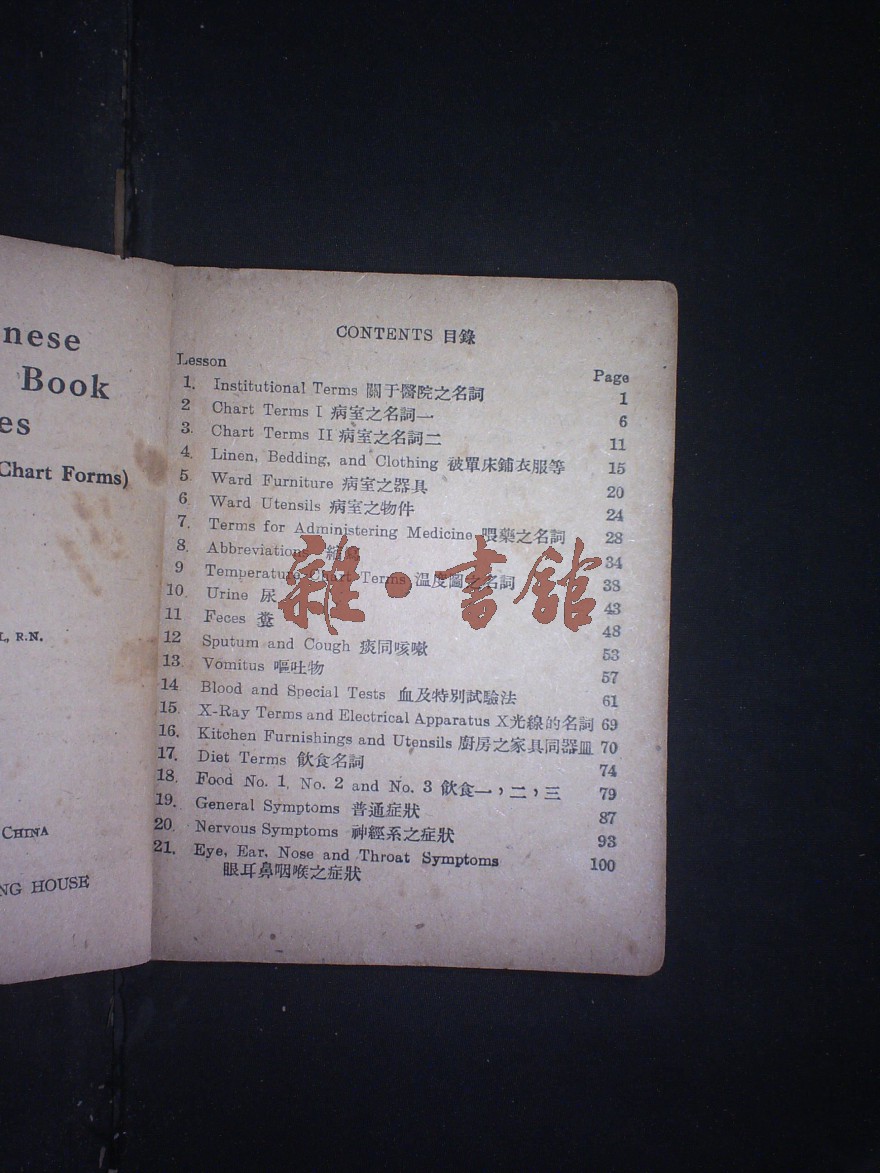 nese
Book
es
Chart Forms)
R.N.
CHINA
NG HOUSE
CONTENTS 目錄
Lesson Page
1. Institutional Terms 關于醫院之名詞 1
2 Chart Terms I 病室之名詞一 6
3. Chart Terms II 病室之名詞二 11
4. Linen, Bedding, and Clothing 被單床鋪衣服等 15
5 Ward Furniture 病室之器具 20
6. Ward Utensils 病室之物件 24
7. Terms for Administering Medicine 喂藥之名詞 28
8. Abbreviations 34
9 Temperature Chart Terms 温度圖之名詞 38
10. Urine 尿 43
11 Feces 糞 48
12 Sputum and Cough 痰同咳嗽 53
13. Vomitus 嘔吐物 57
14 Blood and Special Tests 血及特別試驗法 61
15. X-Ray Terms and Electrical Apparatus X光線的名詞 69
16. Kitchen Furnishings and Utensils 廚房之家具同器皿 70
17. Diet Terms 飲食名詞 74
18. Food No. 1, No. 2 and No. 3 飲食一，二，三 79
19. General Symptoms 普通症狀 87
20. Nervous Symptoms 神經系之症狀 93
21. Eye, Ear, Nose and Throat Symptoms 100
眼耳鼻咽喉之症狀
雜·書館